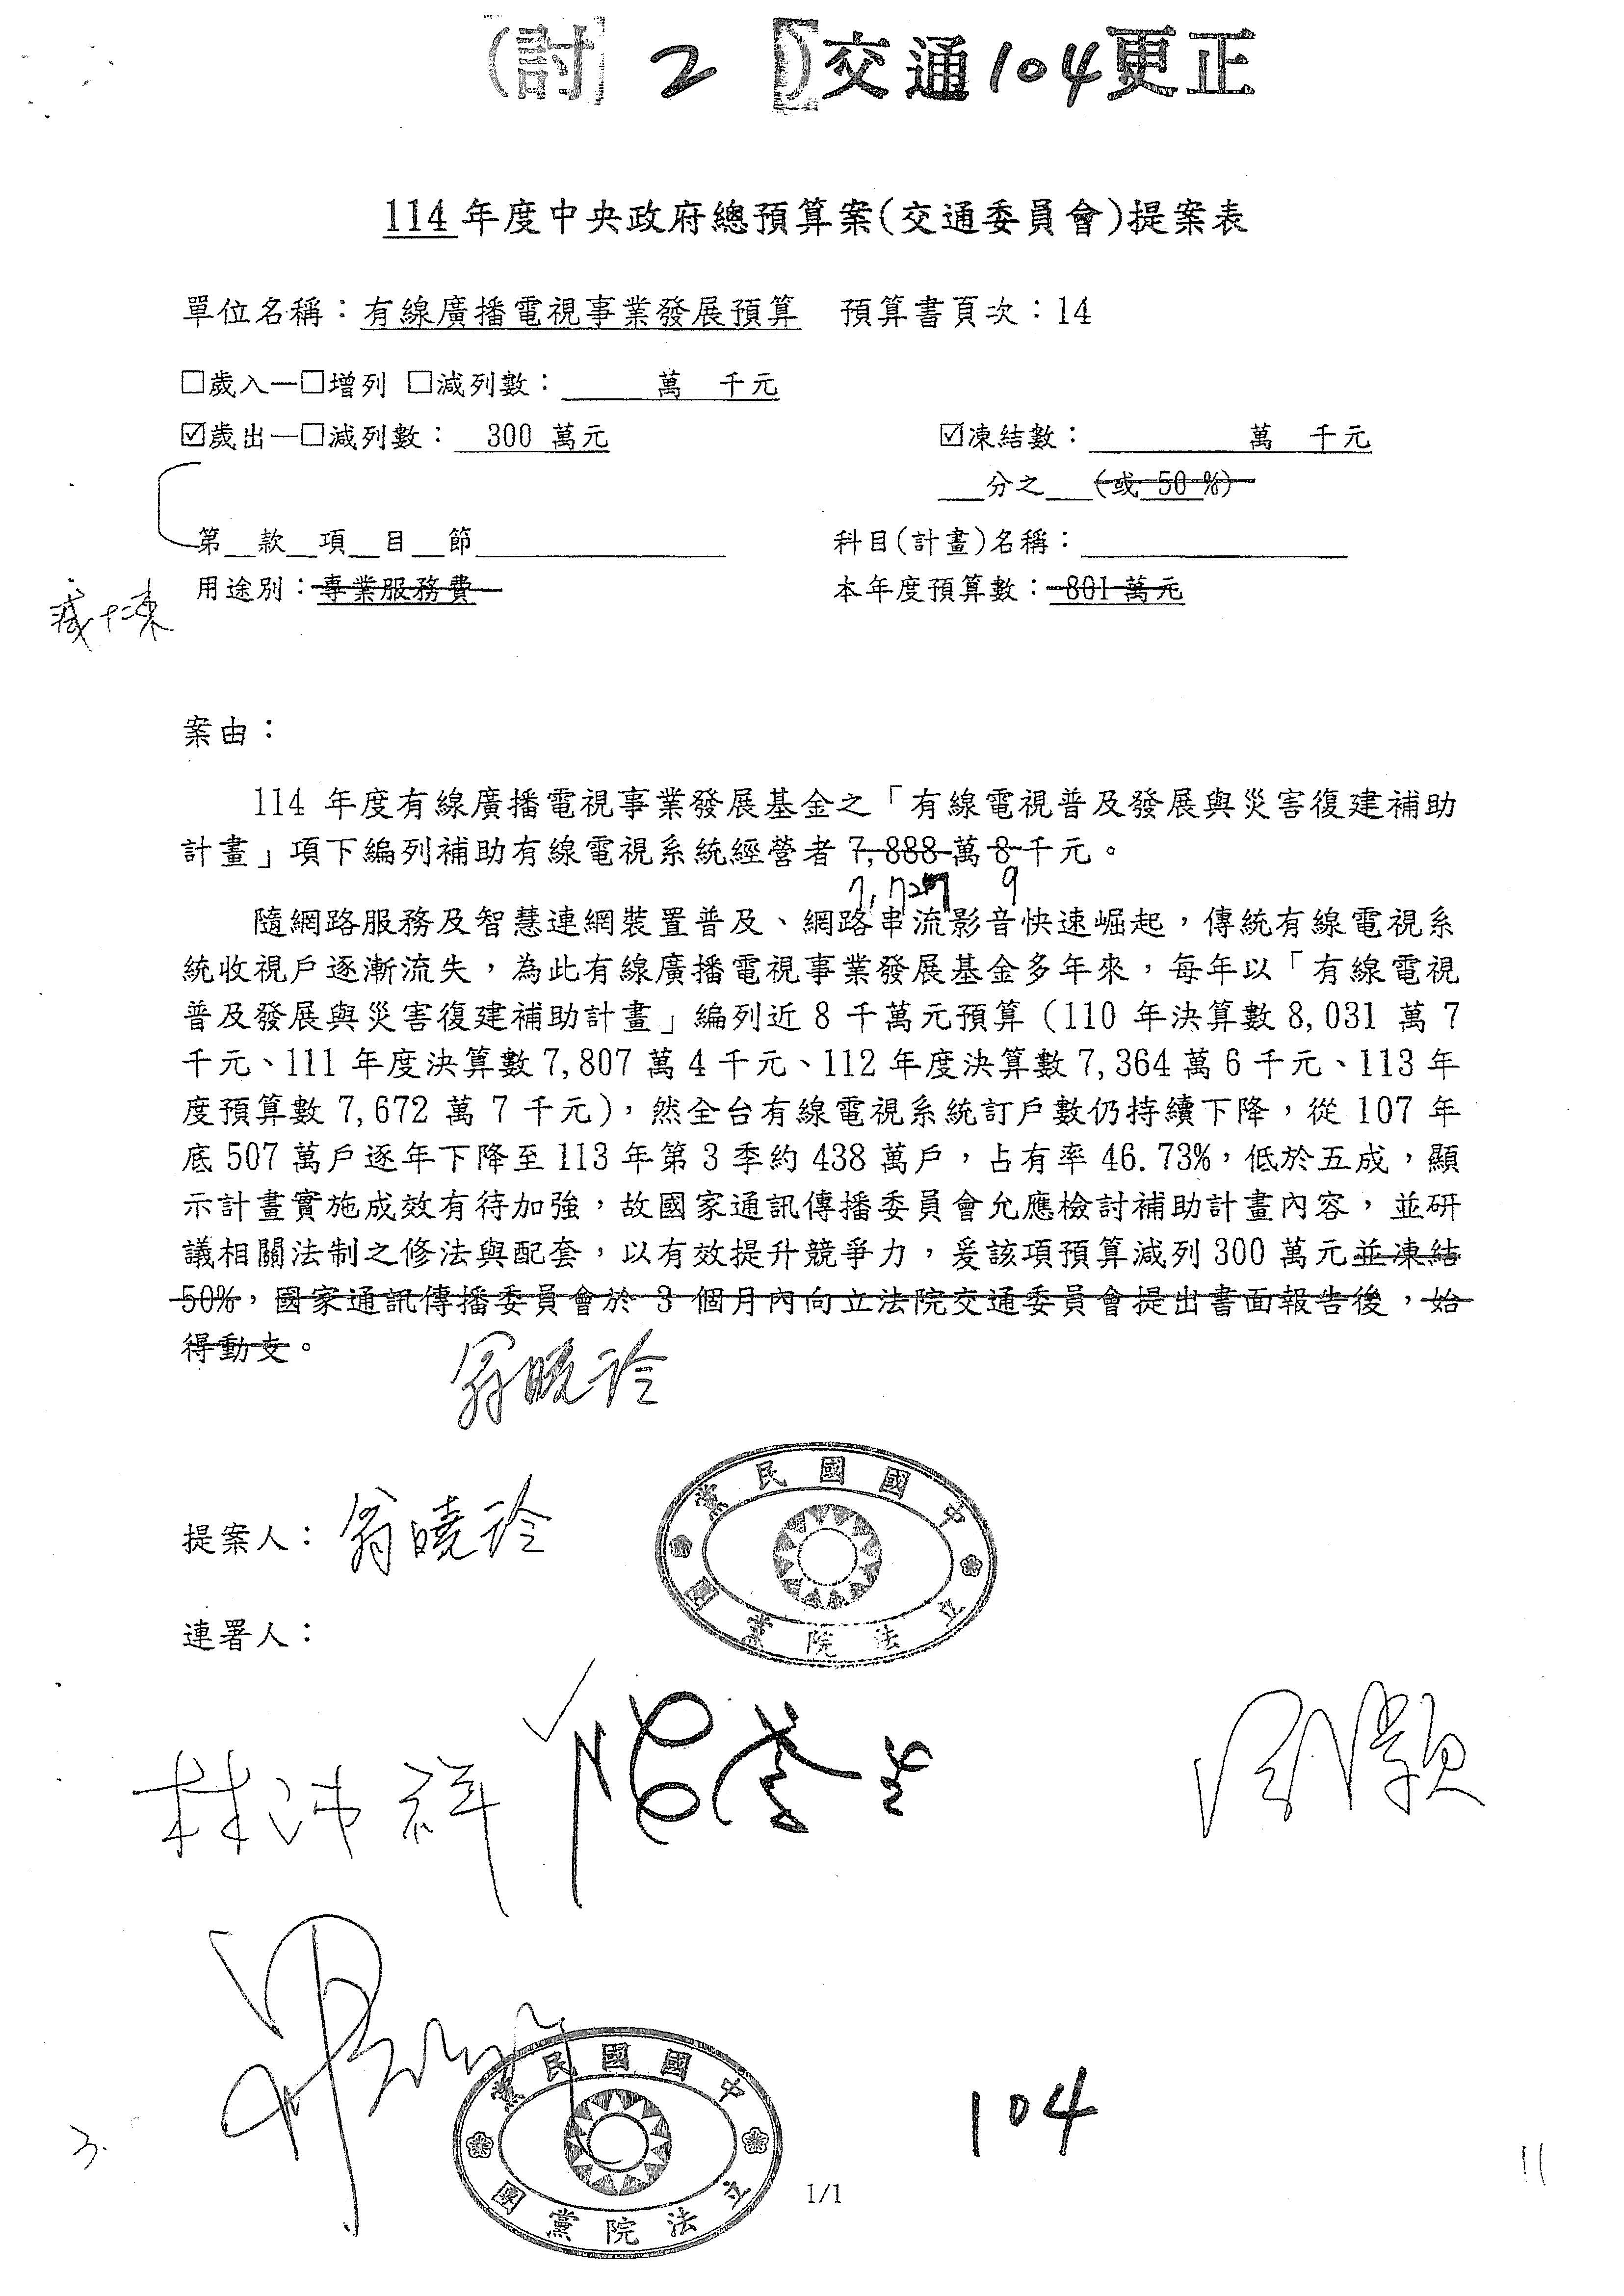 (討 2 )交通104更正
114年度中央政府總預算案(交通委員會)提案表
單位名稱：有線廣播電視事業發展預算 預算書頁次：14
□歲入—□增列 □減列數： 萬 千元
☑歲出—□減列數： 300 萬元 ☑凍結數： 萬 千元
__分之__(或 50 %)
第__款__項__目__節 科目(計畫)名稱：
用途別：專業服務費 本年度預算數：801萬元
減+凍
案由：
114 年度有線廣播電視事業發展基金之「有線電視普及發展與災害復建補助
計畫」項下編列補助有線電視系統經營者 7,888 萬 8 千元。
7,727 9
隨網路服務及智慧連網裝置普及、網路串流影音快速崛起，傳統有線電視系
統收視戶逐漸流失，為此有線廣播電視事業發展基金多年來，每年以「有線電視
普及發展與災害復建補助計畫」編列近 8 千萬元預算（110 年決算數 8,031 萬 7
千元、111 年度決算數 7,807 萬 4 千元、112 年度決算數 7,364 萬 6 千元、113 年
度預算數 7,672 萬 7 千元），然全台有線電視系統訂戶數仍持續下降，從 107 年
底 507 萬戶逐年下降至 113 年第 3 季約 438 萬戶，占有率 46.73%，低於五成，顯
示計畫實施成效有待加強，故國家通訊傳播委員會允應檢討補助計畫內容，並研
議相關法制之修法與配套，以有效提升競爭力，爰該項預算減列 300 萬元並凍結
50%，國家通訊傳播委員會於 3 個月內向立法院交通委員會提出書面報告後，始
得動支。
翁曉玲
提案人：翁曉玲
中國國民黨
立法院黨團
連署人：
林沛祥
中國國民黨
立法院黨團
104
3.
1/1
11